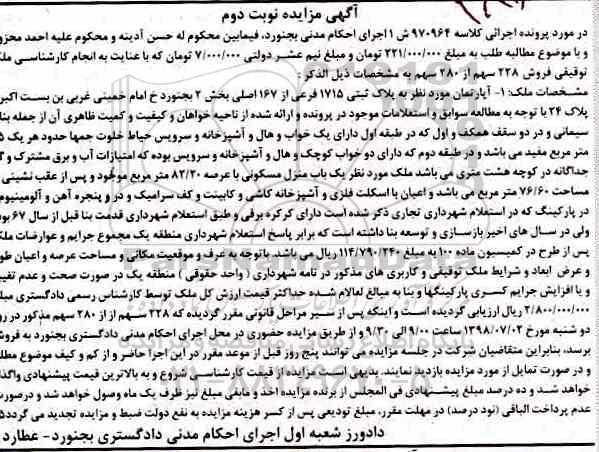 آگهی مزایده نوبت دوم
در مورد پرونده اجرائی کلاسه ۹۷۰۹۶۴ ش ۱ اجرای احکام مدنی بجنورد، فیمابین محکوم له حسن آدینه و محکوم علیه احمد
و با موضوع مطالبه طلب به مبلغ ۲۲۱/۰۰۰/۰۰۰ تومان و مبلغ نیم عشر دولتی ۷/۰۰۰/۰۰۰ تومان که با عنایت به انجام کارشناسی
توقیفی فروش ۲۲۸ سهم از ۲۸۰ سهم به مشخصات ذیل الذکر:
مشخصات ملک: ۱- آپارتمان مورد نظر به پلاک ثبتی ۱۷۱۵ فرعی از ۱۶۷ اصلی بخش ۲ بجنورد خ امام خمینی غربی بن بست اکبر
پلاک ۲۴ با توجه به مطالعه سوابق و استعلامات موجود در پرونده و ارائه شده از ناحیه خواهان و کیفیت و کمیت ظاهری آن از جمله بنا
سیمانی و در دو سقف همکف و اول که در طبقه اول دارای یک خواب و هال و آشپزخانه و سرویس حیاط خلوت جمعا حدود هر یک
متر مربع مفید می باشد و در طبقه دوم که دارای دو خواب کوچک و هال و آشپزخانه و سرویس بوده که امتیازات آب و برق مشترک و
جداگانه در کوچه هشت متری می باشد ملک مورد نظر یک باب منزل مسکونی با عرصه ۸۲/۲۰ متر مربع موجود و پس از عقب نشینی
مساحت ۷۶/۶۰ متر مربع می باشد و اعیان با اسکلت فلزی و آشپزخانه کاشی و کابینت و کف سرامیک و در و پنجره آهن و آلومینیوم
در پارکینگ که در استعلام شهرداری تجاری ذکر شده است دارای کرکره برقی و طبق استعلام شهرداری قدمت بنا قبل از سال ۶۷
ولی در سال های اخیر بازسازی و توسعه بنا داشته است که برابر پاسخ استعلام شهرداری منطقه یک مجموع جرایم و عوارضات
پس از طرح در کمیسیون ماده ۱۰۰ به مبلغ ۱۱۴/۷۹۰/۲۴۰ ریال می باشد. باتوجه به عرف و موقعیت مکانی و مساحت عرصه و اعیان
و عرض ابعاد و شرایط ملک توقیفی و کاربری های مذکور در نامه شهرداری (واحد حقوقی) منطقه یک در صورت صحت و عدم
و یا افزایش جرایم کسری پارکینگها و بنا به مبالغ لعالام شده حداکثر قیمت ارزش کل ملک توسط کارشناس رسمی دادگستری
۲/۸۰۰/۰۰۰/۰۰۰ ریال ارزیابی گردیده است و اینکه پس از سیر مراحل قانونی مقرر گردیده که ۲۲۸ سهم از ۲۸۰ سهم مذکور در
دو شنبه مورخ ۱۳۹۸/۰۷/۰۲ ساعت ۹/۰۰ الی ۹/۳۰ و از طریق مزایده حضوری در محل اجرای احکام مدنی دادگستری بجنورد به
برسد، بنابراین متقاضیان شرکت در جلسه مزایده می توانند پنج روز قبل از موعد مقرر در این اجرا حاضر و از کم و کیف موضوع
و در صورت تمایل از مورد مزایده بازدید نمایند. بدیهی است مزایده از قیمت کارشناسی شروع و به بالاترین قیمت پیشنهادی
خواهد شد و ده درصد مبلغ پیشنهادی فی المجلس از برنده مزایده اخذ و مابقی مبلغ نیز ظرف یک ماه وصول خواهد شد و
عدم پرداخت الباقی (نود درصد) در مهلت مقرر، مبلغ تودیعی پس از کسر هزینه مزایده به نفع دولت ضبط و مزایده تجدید می گردد
دادورز شعبه اول اجرای احکام مدنی دادگستری بجنورد- عطارد